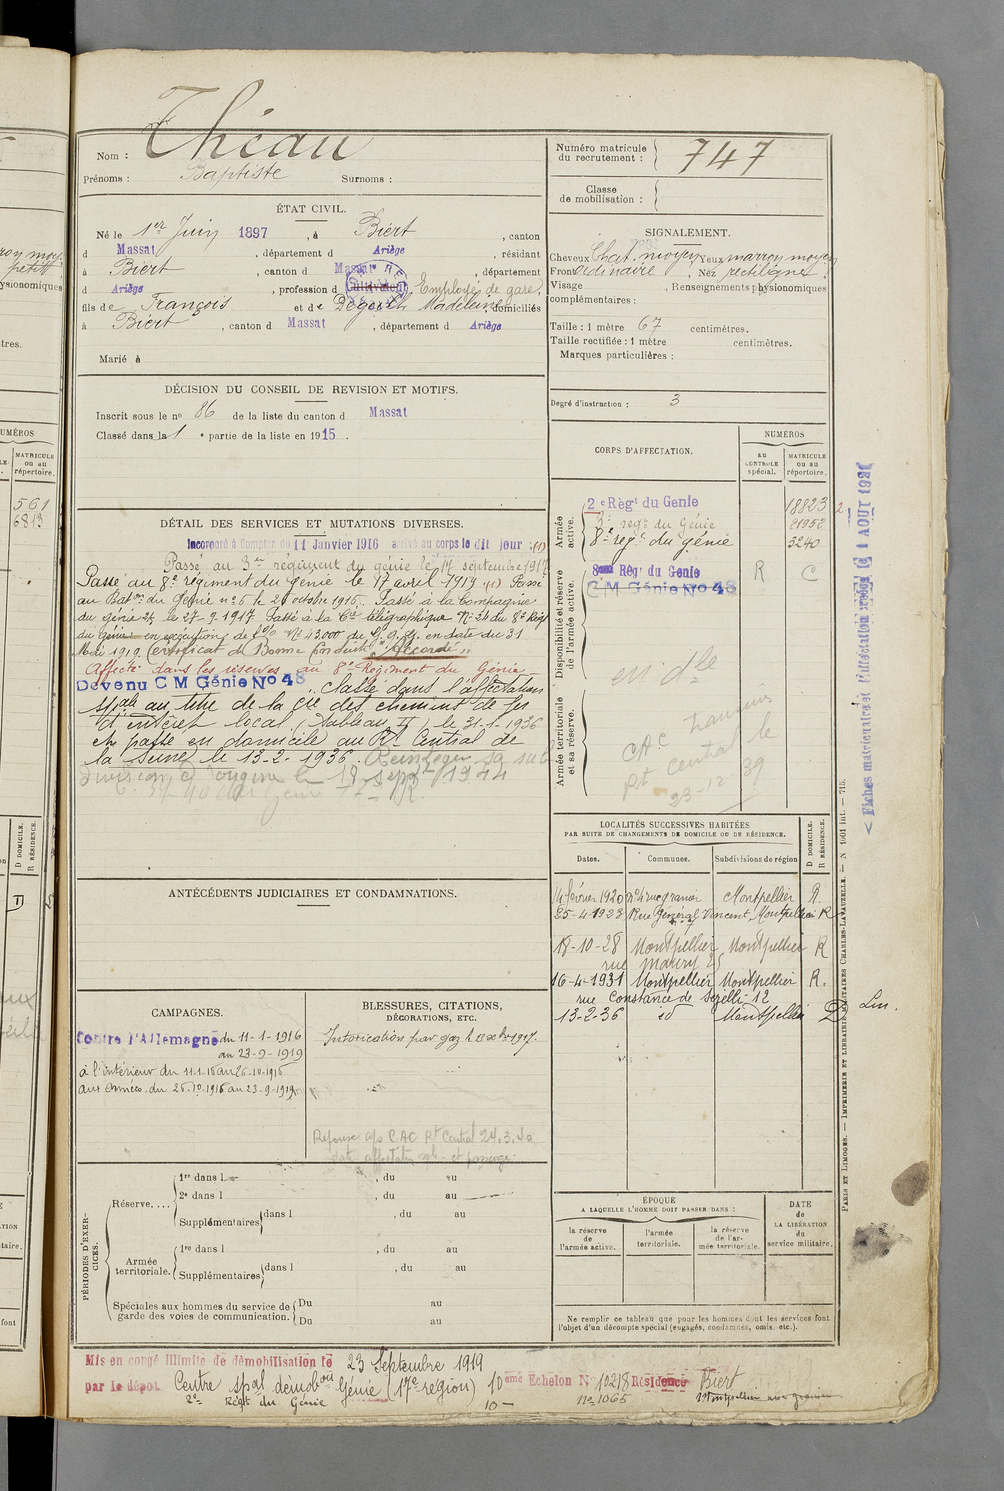 Nom : Théau
Prénoms : Baptiste Surnoms :
Numéro matricule du recrutement : 747
Classe de mobilisation :
ÉTAT CIVIL.
Né le 1er Juin 1897, à Biert, canton
d Massat, département d Ariège, résidant
à Biert, canton d Massat, département
d Ariège, profession d Cultivateur Employé de gare,
fils de François et de Degeilh Madeleine, domiciliés
à Biert, canton d Massat, département d Ariège
Marié à
SIGNALEMENT.
Cheveux Chat. moyen Yeux marron moyen
Front Ordinaire, Nez rectiligne
Visage , Renseignements physionomiques
complémentaires :
Taille : 1 mètre 67 centimètres.
Taille rectifiée : 1 mètre centimètres.
Marques particulières :
Degré d'instruction : 3
DÉCISION DU CONSEIL DE REVISION ET MOTIFS.
Inscrit sous le no 86 de la liste du canton d Massat
Classé dans la 1e partie de la liste en 1915.
DÉTAIL DES SERVICES ET MUTATIONS DIVERSES.
Incorporé à Compter du 11 Janvier 1916 arrivé au corps le dit jour. (1)
Passé au 3me régiment du génie le 17 septembre 1917
Passé au 8e régiment du Génie le 17 avril 1919 (1) Passé
au Baton du Génie no 6 le 26 octobre 1916. Passé à la Compagnie
du génie le 27-9-1917 Passé à la Cie télégraphique No 24 du 8e Régt
du Génie en exécution de No 43000 du G.Q.G. en date du 31
Mai 1919 Certificat de Bonne Conduite "Accordé"
Affecté dans les réserves au 8e Régiment du Génie
Devenu C M Génie No 48 Classé dans l'affectation
spale au titre de la Cie des chemins de fer
d'intérêt local, tableau II, le 31.1.1936
et passé en domicile au Rt Central de
la Seine le 13-2-1936. Réintégré sa sub
division d'origine le 19 sept 1944
CORPS D'AFFECTATION.
NUMÉROS
AU CONTROLE spécial.
MATRICULE ou au répertoire.
Armée active.
2e Régt du Genie 18823
3e regt du Génie 21952
8e regt du génie 3240
Disponibilité et réserve de l'armée active.
8eme Régt du Genie R C
C M Génie No 48
en dle
Armée territoriale et sa réserve.
CAC
Rt Central le
23-12-39
LOCALITÉS SUCCESSIVES HABITÉES
PAR SUITE DE CHANGEMENTS DE DOMICILE OU DE RÉSIDENCE.
Dates. Communes. Subdivisions de région
D DOMICILE. R RÉSIDENCE.
14 février 1920 no 4 rue granier Montpellier R.
25-4-1923 Rue Général Vincent, Montpellier R
no 7
18-10-28 Montpellier Montpellier R
rue Maury
16-4-1931 Montpellier Montpellier R.
rue Constance de 12
13-2-36 id Montpellier D
ANTÉCÉDENTS JUDICIAIRES ET CONDAMNATIONS.
CAMPAGNES.
Contre l'Allemagne du 11-1-1916
au 23-9-1919
à l'intérieur du 11-1-16 au 25-10-1916
aux Armées du 26-10-1916 au 23-9-1919
BLESSURES, CITATIONS,
DÉCORATIONS, ETC.
Intoxication par gaz le 1917.
Réponse CAC Rt Central 24.3.40
date affectation
PÉRIODES D'EXERCICES.
Réserve....
1re dans l , du au
2e dans l , du au
Supplémentaires dans l , du au
Armée territoriale.
1re dans l , du au
Supplémentaires dans l , du au
Spéciales aux hommes du service de
garde des voies de communication.
Du au
Du au
ÉPOQUE
A LAQUELLE L'HOMME DOIT PASSER DANS :
la réserve de l'armée active.
l'armée territoriale.
la réserve de l'armée territoriale.
DATE de LA LIBÉRATION du service militaire.
Ne remplir ce tableau que pour les hommes dont les services font
l'objet d'un décompte spécial (engagés, condamnés, omis, etc.).
Mis en congé illimité de démobilisation le 23 Septembre 1919
par le dépot Centre spal démobon Génie (17e région) 10ème Echelon No 10218 Résidence Biert
2e Régt du Génie 10 no 1065
PARIS ET LIMOGES. — IMPRIMERIE ET LIBRAIRIE MILITAIRES CHARLES-LAVAUZELLE. — N 1901 int. — 715.
561
6813